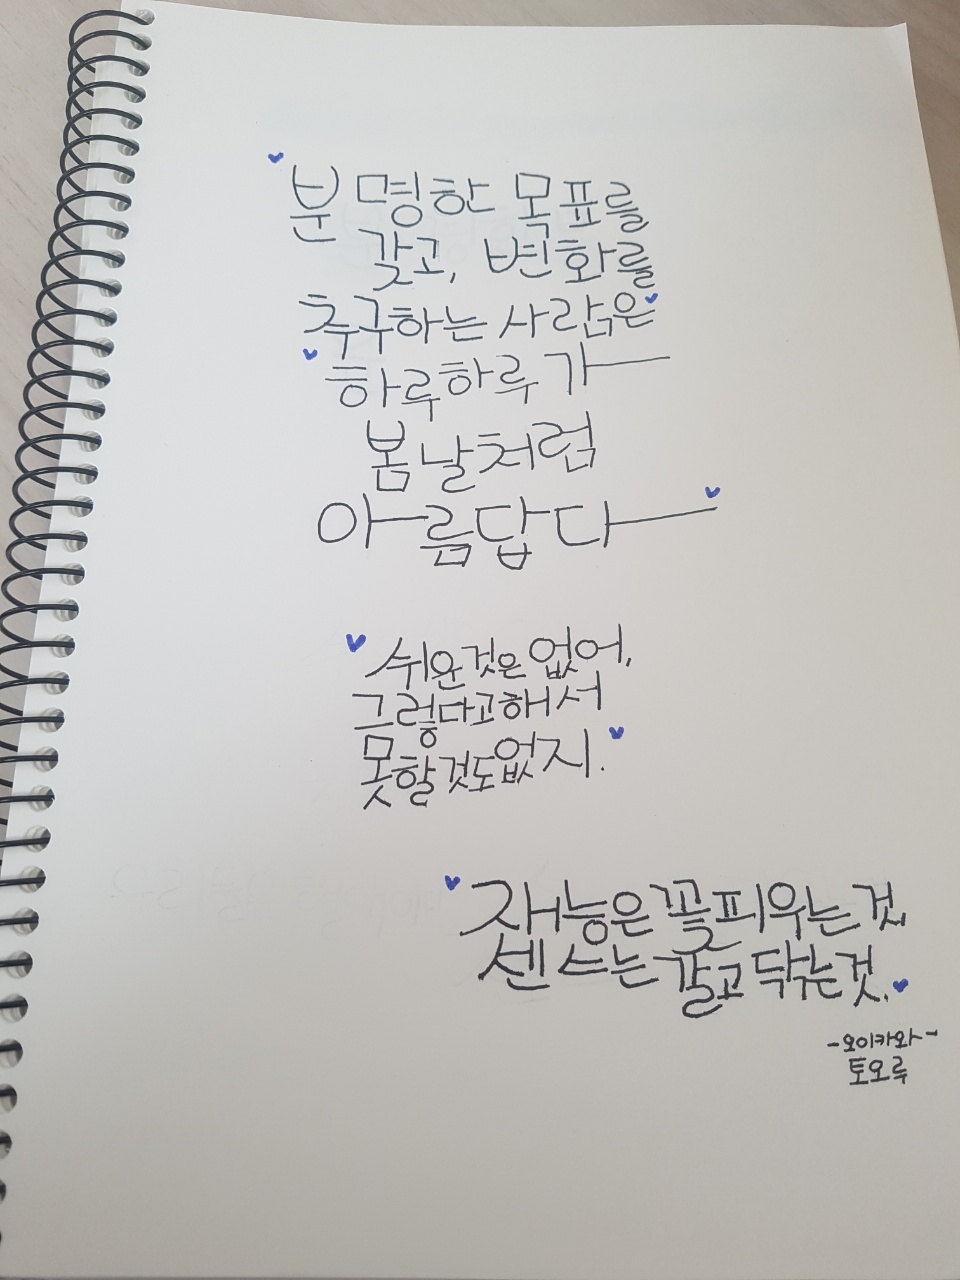 분명한 목표를
갖고, 변화를
추구하는 사람은
하루하루가
봄날처럼
아름답다
쉬운것은 없어,
그렇다고해서
못할것도없지.
재능은 꽃피우는것
센스는 갈고닦는것.
-오이카와-
토오루